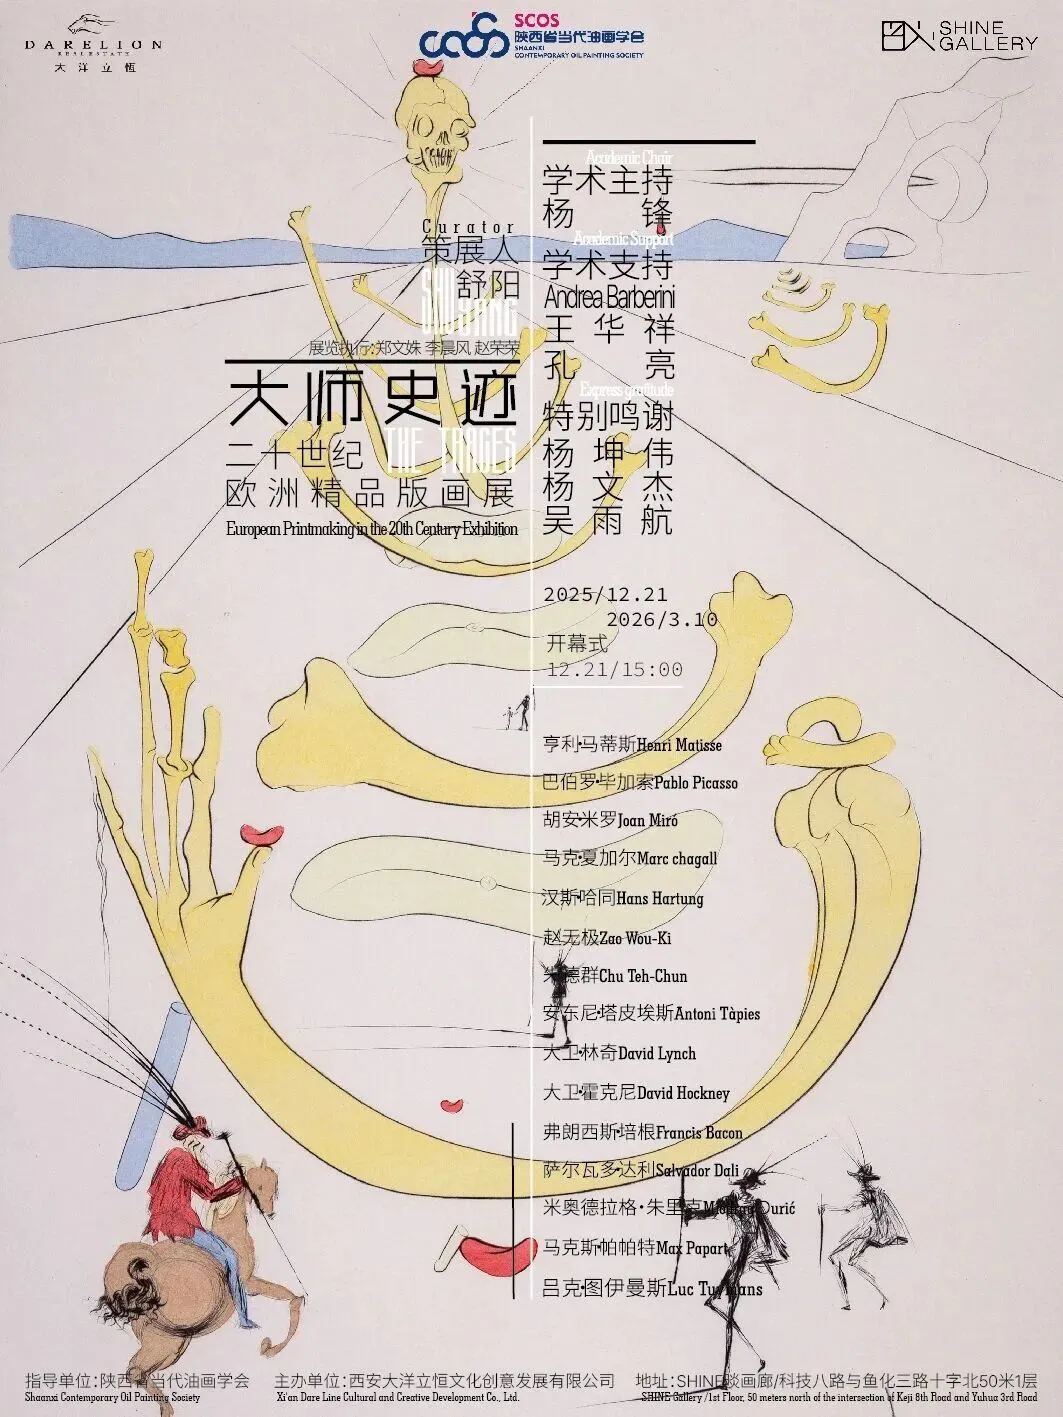 DARELION
REAL ESTATE
大洋立恆
SCOS
陕西省当代油画学会
SHAANXI
CONTEMPORARY OIL PAINTING SOCIETY
SHINE
GALLERY
Curator
策展人
舒阳
SHU YANG
展览执行:郑文姝 李晨风 赵荣荣
大师史迹
THE TRACES
二十世纪
欧洲精品版画展
European Printmaking in the 20th Century Exhibition
Academic Chair
学术主持
杨锋
Academic Support
学术支持
Andrea Barberini
王华祥
孔亮
Express gratitude
特别鸣谢
杨坤伟
杨文杰
吴雨航
2025/12.21
2026/3.10
开幕式
12.21/15:00
亨利·马蒂斯Henri Matisse
巴伯罗·毕加索Pablo Picasso
胡安·米罗Joan Miró
马克·夏加尔Marc chagall
汉斯·哈同Hans Hartung
赵无极Zao Wou-Ki
朱德群Chu Teh-Chun
安东尼·塔皮埃斯Antoni Tàpies
大卫·林奇David Lynch
大卫·霍克尼David Hockney
弗朗西斯·培根Francis Bacon
萨尔瓦多·达利Salvador Dali
米奥德拉格·朱里克 Đurić
马克斯·帕帕特Max Papart
吕克·图伊曼斯Luc Tuymans
指导单位:陕西省当代油画学会
Shaanxi Contemporary Oil Painting Society
主办单位:西安大洋立恒文化创意发展有限公司
Xi'an Dare Line Cultural and Creative Development Co., Ltd.
地址:SHINE睒画廊/科技八路与鱼化三路十字北50米1层
SHINE Gallery /1st Floor, 50 meters north of the intersection of Keji 8th Road and Yuhua 3rd Road